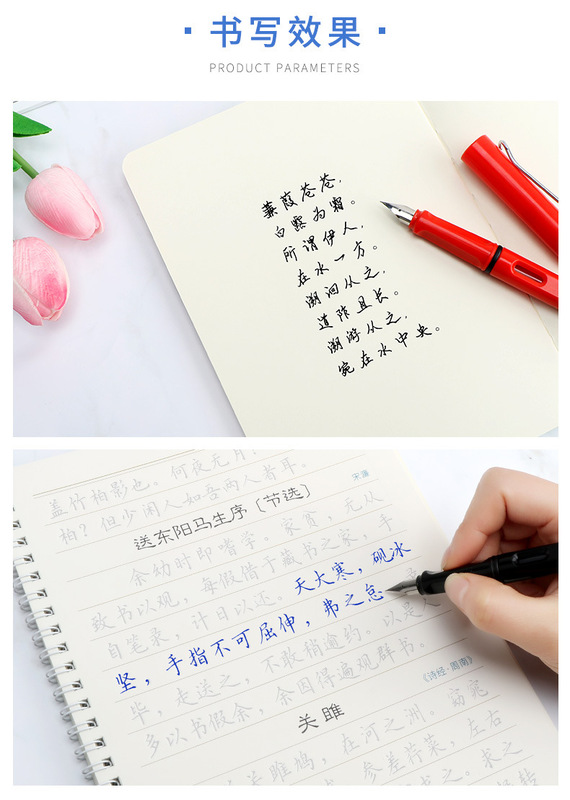 书写效果
PRODUCT PARAMETERS
蒹葭苍苍，
白露为霜。
所谓伊人，
在水一方。
溯洄从之，
道阻且长。
溯游从之，
宛在水中央。
盖竹柏影也。何夜无月？
柏？但少闲人如吾两人者耳。
送东阳马生序（节选）
宋濂
余幼时即嗜学。家贫，无从
致书以观，每假借于藏书之家，手
自笔录，计日以还。天大寒，砚冰
坚，手指不可屈伸，弗之怠
毕，走送之，不敢稍逾约。以是人
多以书假余，余因得遍观群书。
关雎
《诗经·周南》
关雎鸠，在河之洲。窈窕
参差荇菜，左右
求之